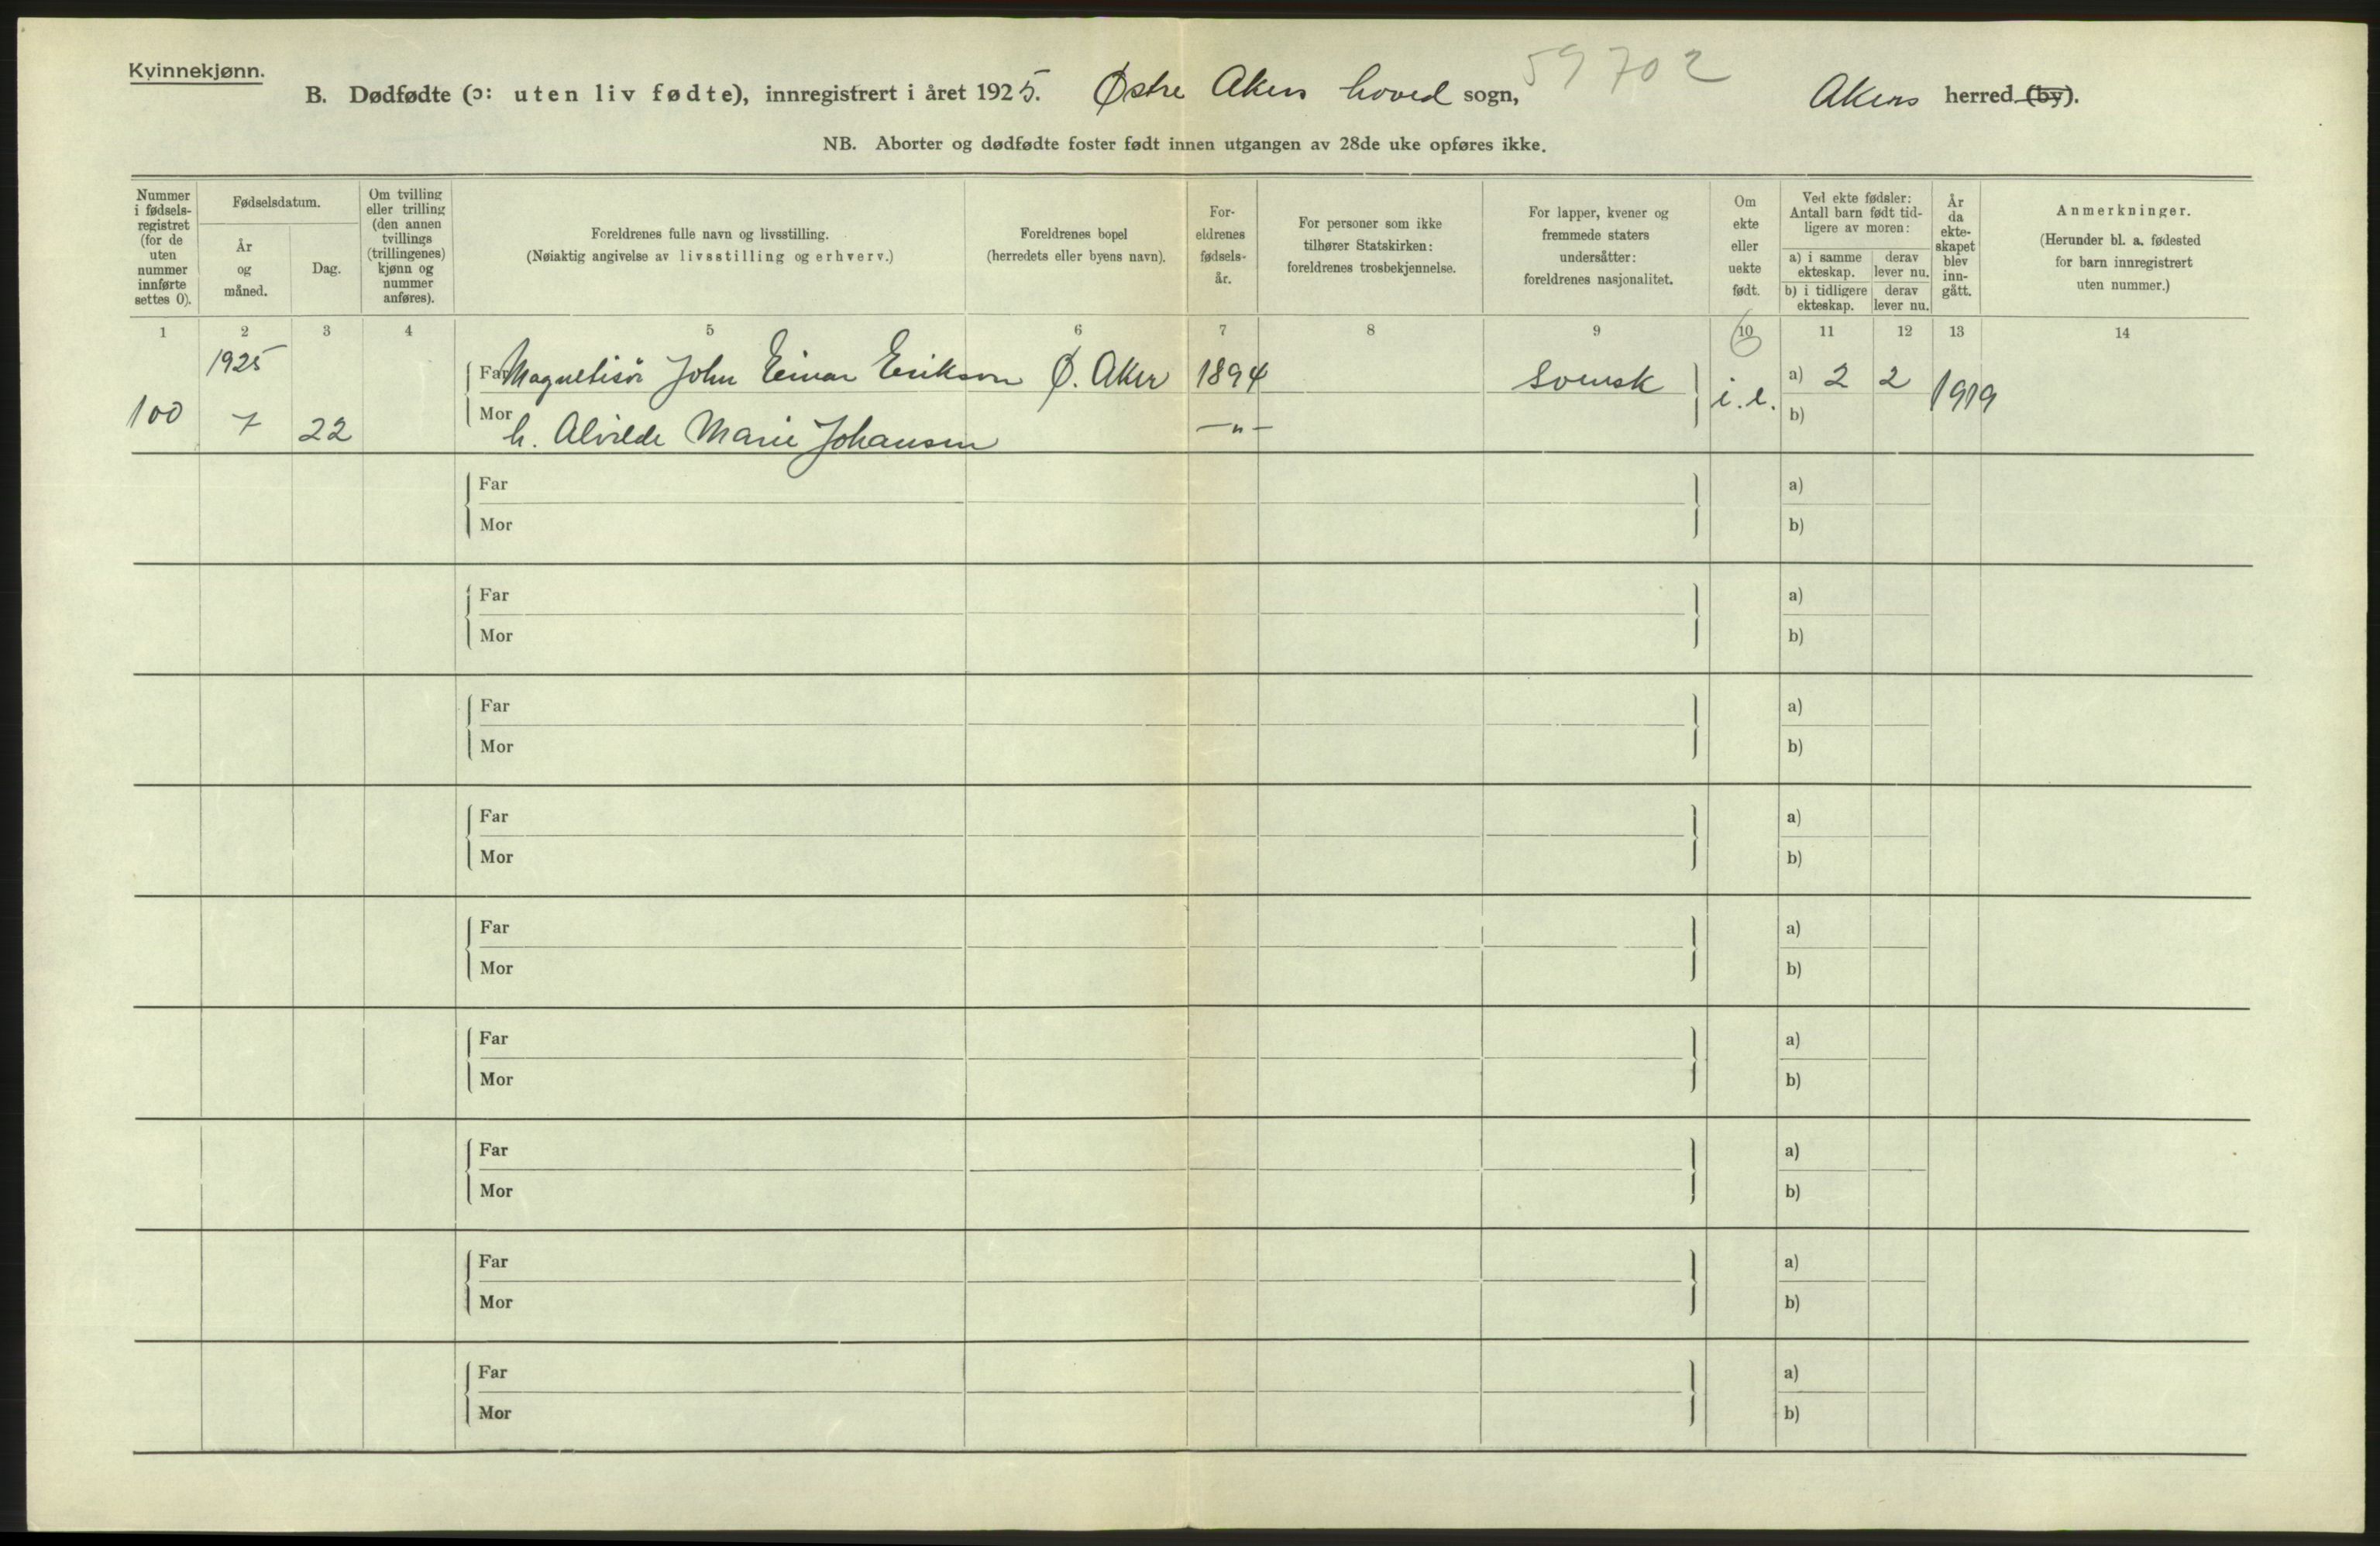 Kvinnekjønn.
59702
B. Dødfødte (ɔ: uten liv fødte), innregistrert i året 1925. Østre Akers hoved sogn, Akers herred (by).
NB. Aborter og dødfødte foster født innen utgangen av 28de uke opføres ikke.
Nummer i fødsels-registret (for de uten nummer innførte settes 0).
Fødselsdatum.
År og måned.
Dag.
Om tvilling eller trilling (den annen tvillings (trillingenes) kjønn og nummer anføres).
Foreldrenes fulle navn og livsstilling.
(Nøiaktig angivelse av livsstilling og erhverv.)
Foreldrenes bopel
(herredets eller byens navn).
For-eldrenes fødsels-år.
For personer som ikke tilhører Statskirken: foreldrenes trosbekjennelse.
For lapper, kvener og fremmede staters undersåtter: foreldrenes nasjonalitet.
Om ekte eller uekte født.
Ved ekte fødsler: Antall barn født tid-ligere av moren:
a) i samme ekteskap.
derav lever nu.
b) i tidligere ekteskap.
derav lever nu.
År da ekte-skapet blev inn-gått.
Anmerkninger.
(Herunder bl. a. fødested for barn innregistrert uten nummer.)
1 2 3 4 5 6 7 8 9 10 11 12 13 14
1925
Far Magnetisør John Einar Erikson Ø. Aker 1894 Svensk a) 2 2 1919
100 7 22 Mor h. Alvilde Marie Johansen —"— i.e. b)
Far a)
Mor b)
Far a)
Mor b)
Far a)
Mor b)
Far a)
Mor b)
Far a)
Mor b)
Far a)
Mor b)
Far a)
Mor b)
Far a)
Mor b)
Far a)
Mor b)